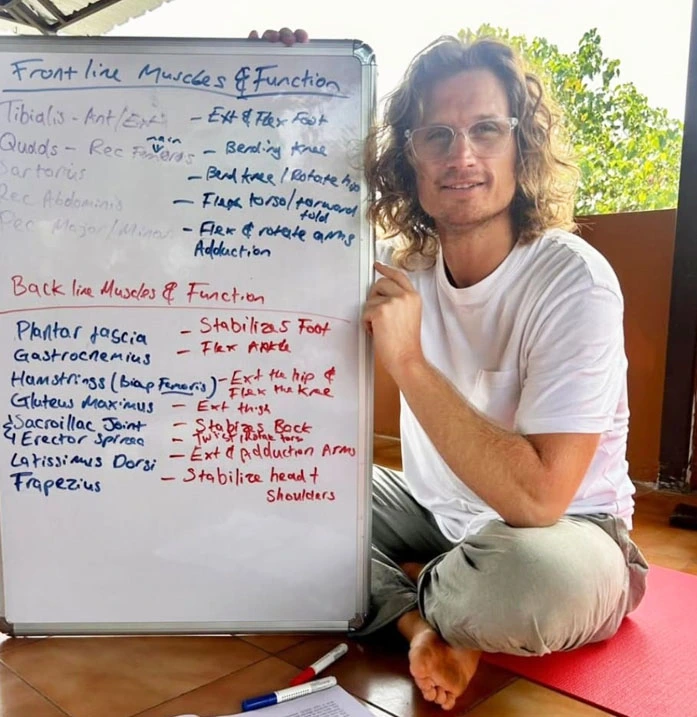 Front line Muscles & Function
Tibialis - Ant/ - Ext & Flex Foot
main
Quads - Rec Femeros - Bending knee
Sartorius - Bend knee / Rotate hip
Rec Abdominis - Flex torso/forward
fold
Pec Major/Minor - Flex & rotate arms
Adduction
Back line Muscles & Function
Plantar fascia - Stabilizes Foot
Gastrocnemius - Flex Ankle
Hamstrings (Bicep Femoris) - Ext the hip &
Flex the knee
Gluteus Maximus - Ext thigh
Sacroillac Joint - Stabizes Back
& Erector Spinea - Twist/rotate tors
Latissimus Dorsi - Ext & Adduction Arms
Trapezius - Stabilize head +
Shoulders